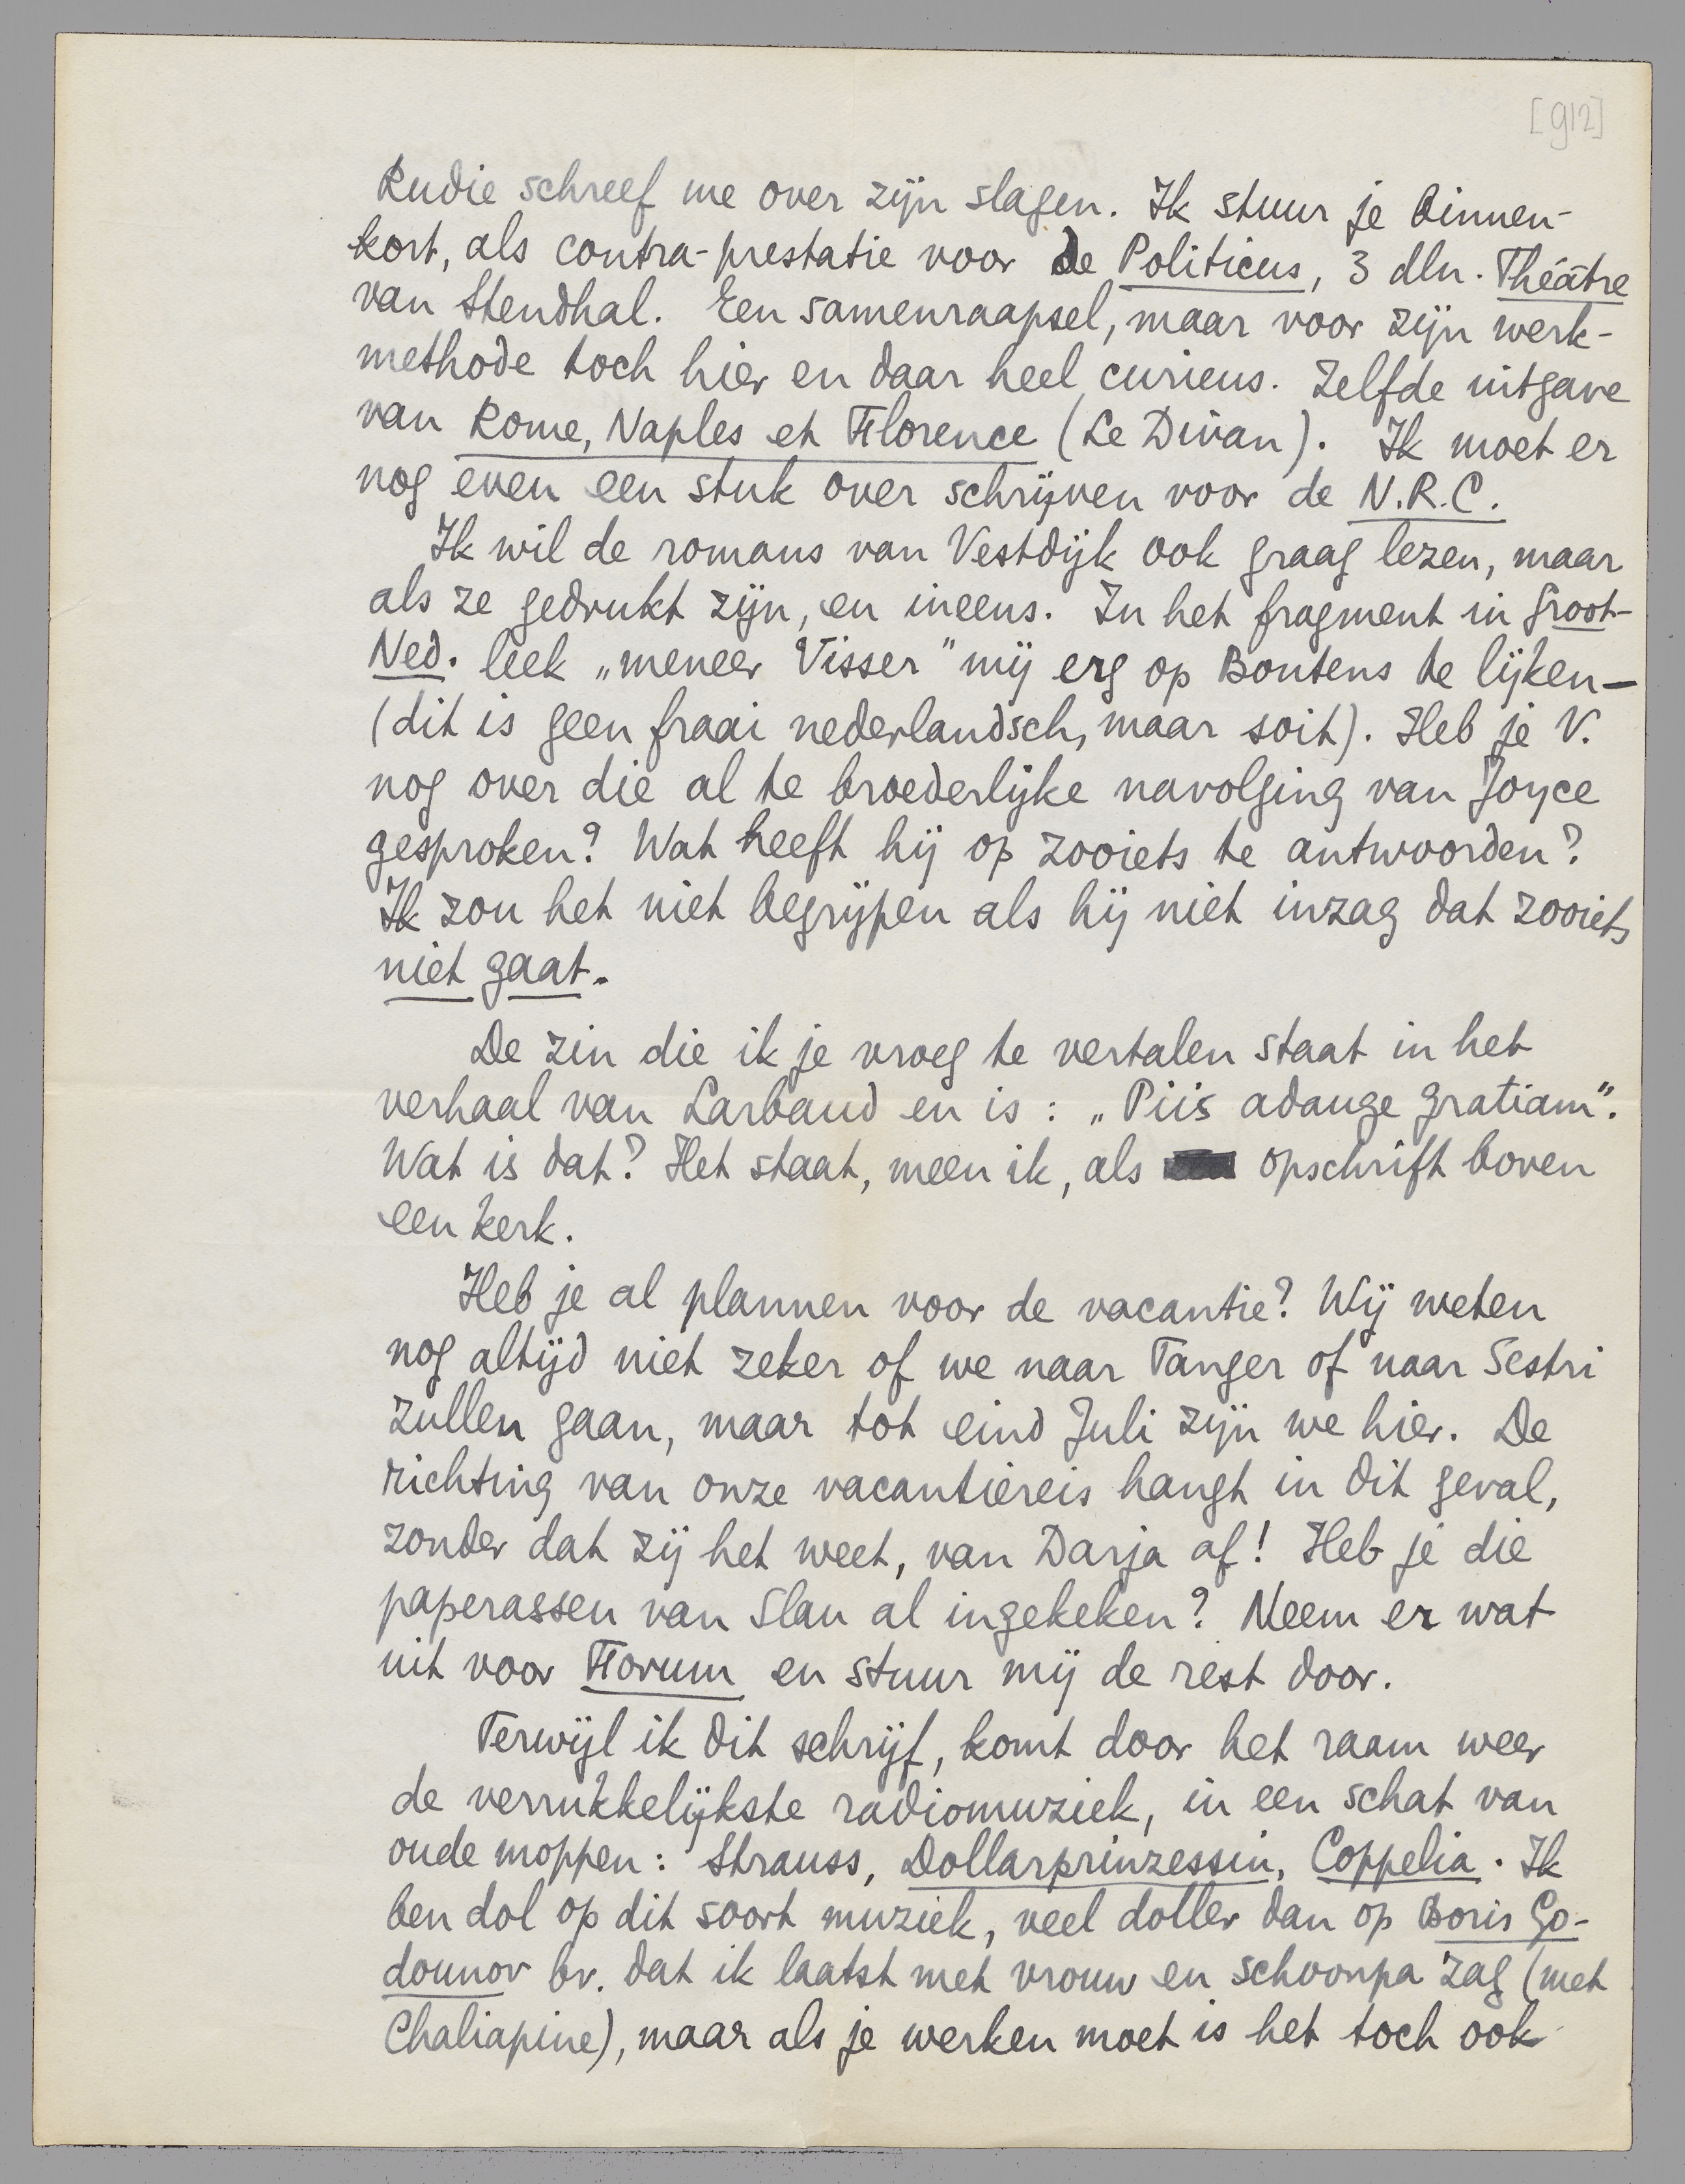 [912]
Rudie schreef me over zijn slagen. Ik stuur je binnen-
kort, als contra-prestatie voor de Politicus, 3 dln. Théâtre
van Stendhal. Een samenraapsel, maar voor zijn werk-
methode toch hier en daar heel curieus. Zelfde uitgave
van Rome, Naples et Florence (Le Divan). Ik moet er
nog even een stuk over schrijven voor de N.R.C.
Ik wil de romans van Vestdijk ook graag lezen, maar
als ze gedrukt zijn, en ineens. In het fragment in Groot-
Ned. leek „meneer Visser" mij erg op Boutens te lijken—
(dit is geen fraai nederlandsch, maar soit). Heb je V.
nog over die al te broederlijke navolging van Joyce
gesproken? Wat heeft hij op zooiets te antwoorden?
Ik zou het niet begrijpen als hij niet inzag dat zooiets
niet gaat.
De zin die ik je vroeg te vertalen staat in het
verhaal van Larbaud en is: „Piis adauge gratiam".
Wat is dat? Het staat, meen ik, als opschrift boven
een kerk.
Heb je al plannen voor de vacantie? Wij weten
nog altijd niet zeker of we naar Tanger of naar Sestri
zullen gaan, maar tot eind Juli zijn we hier. De
richting van onze vacantiereis hangt in dit geval,
zonder dat zij het weet, van Darja af! Heb je die
paperassen van Slau al ingekeken? Neem er wat
uit voor Forum en stuur mij de rest door.
Terwijl ik dit schrijf, komt door het raam weer
de verrukkelijkste radiomuziek, in een schat van
oude moppen: Strauss, Dollarprinzessin, Coppelia. Ik
ben dol op dit soort muziek, veel doller dan op Boris Go-
dounov bv. dat ik laatst met vrouw en schoonpa zag (met
Chaliapine), maar als je werken moet is het toch ook